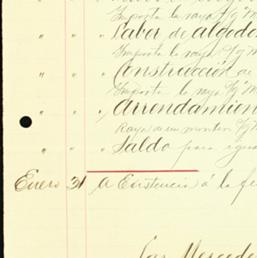 Importe la raya
" " " Labor de algodo
Importe la raya
" " " Construcción de
Importe la raya
" " " Arrendamien
Raya de un monton
" " " Saldo para igua
Enero 31 A Existencia á la fe
Las Mercede